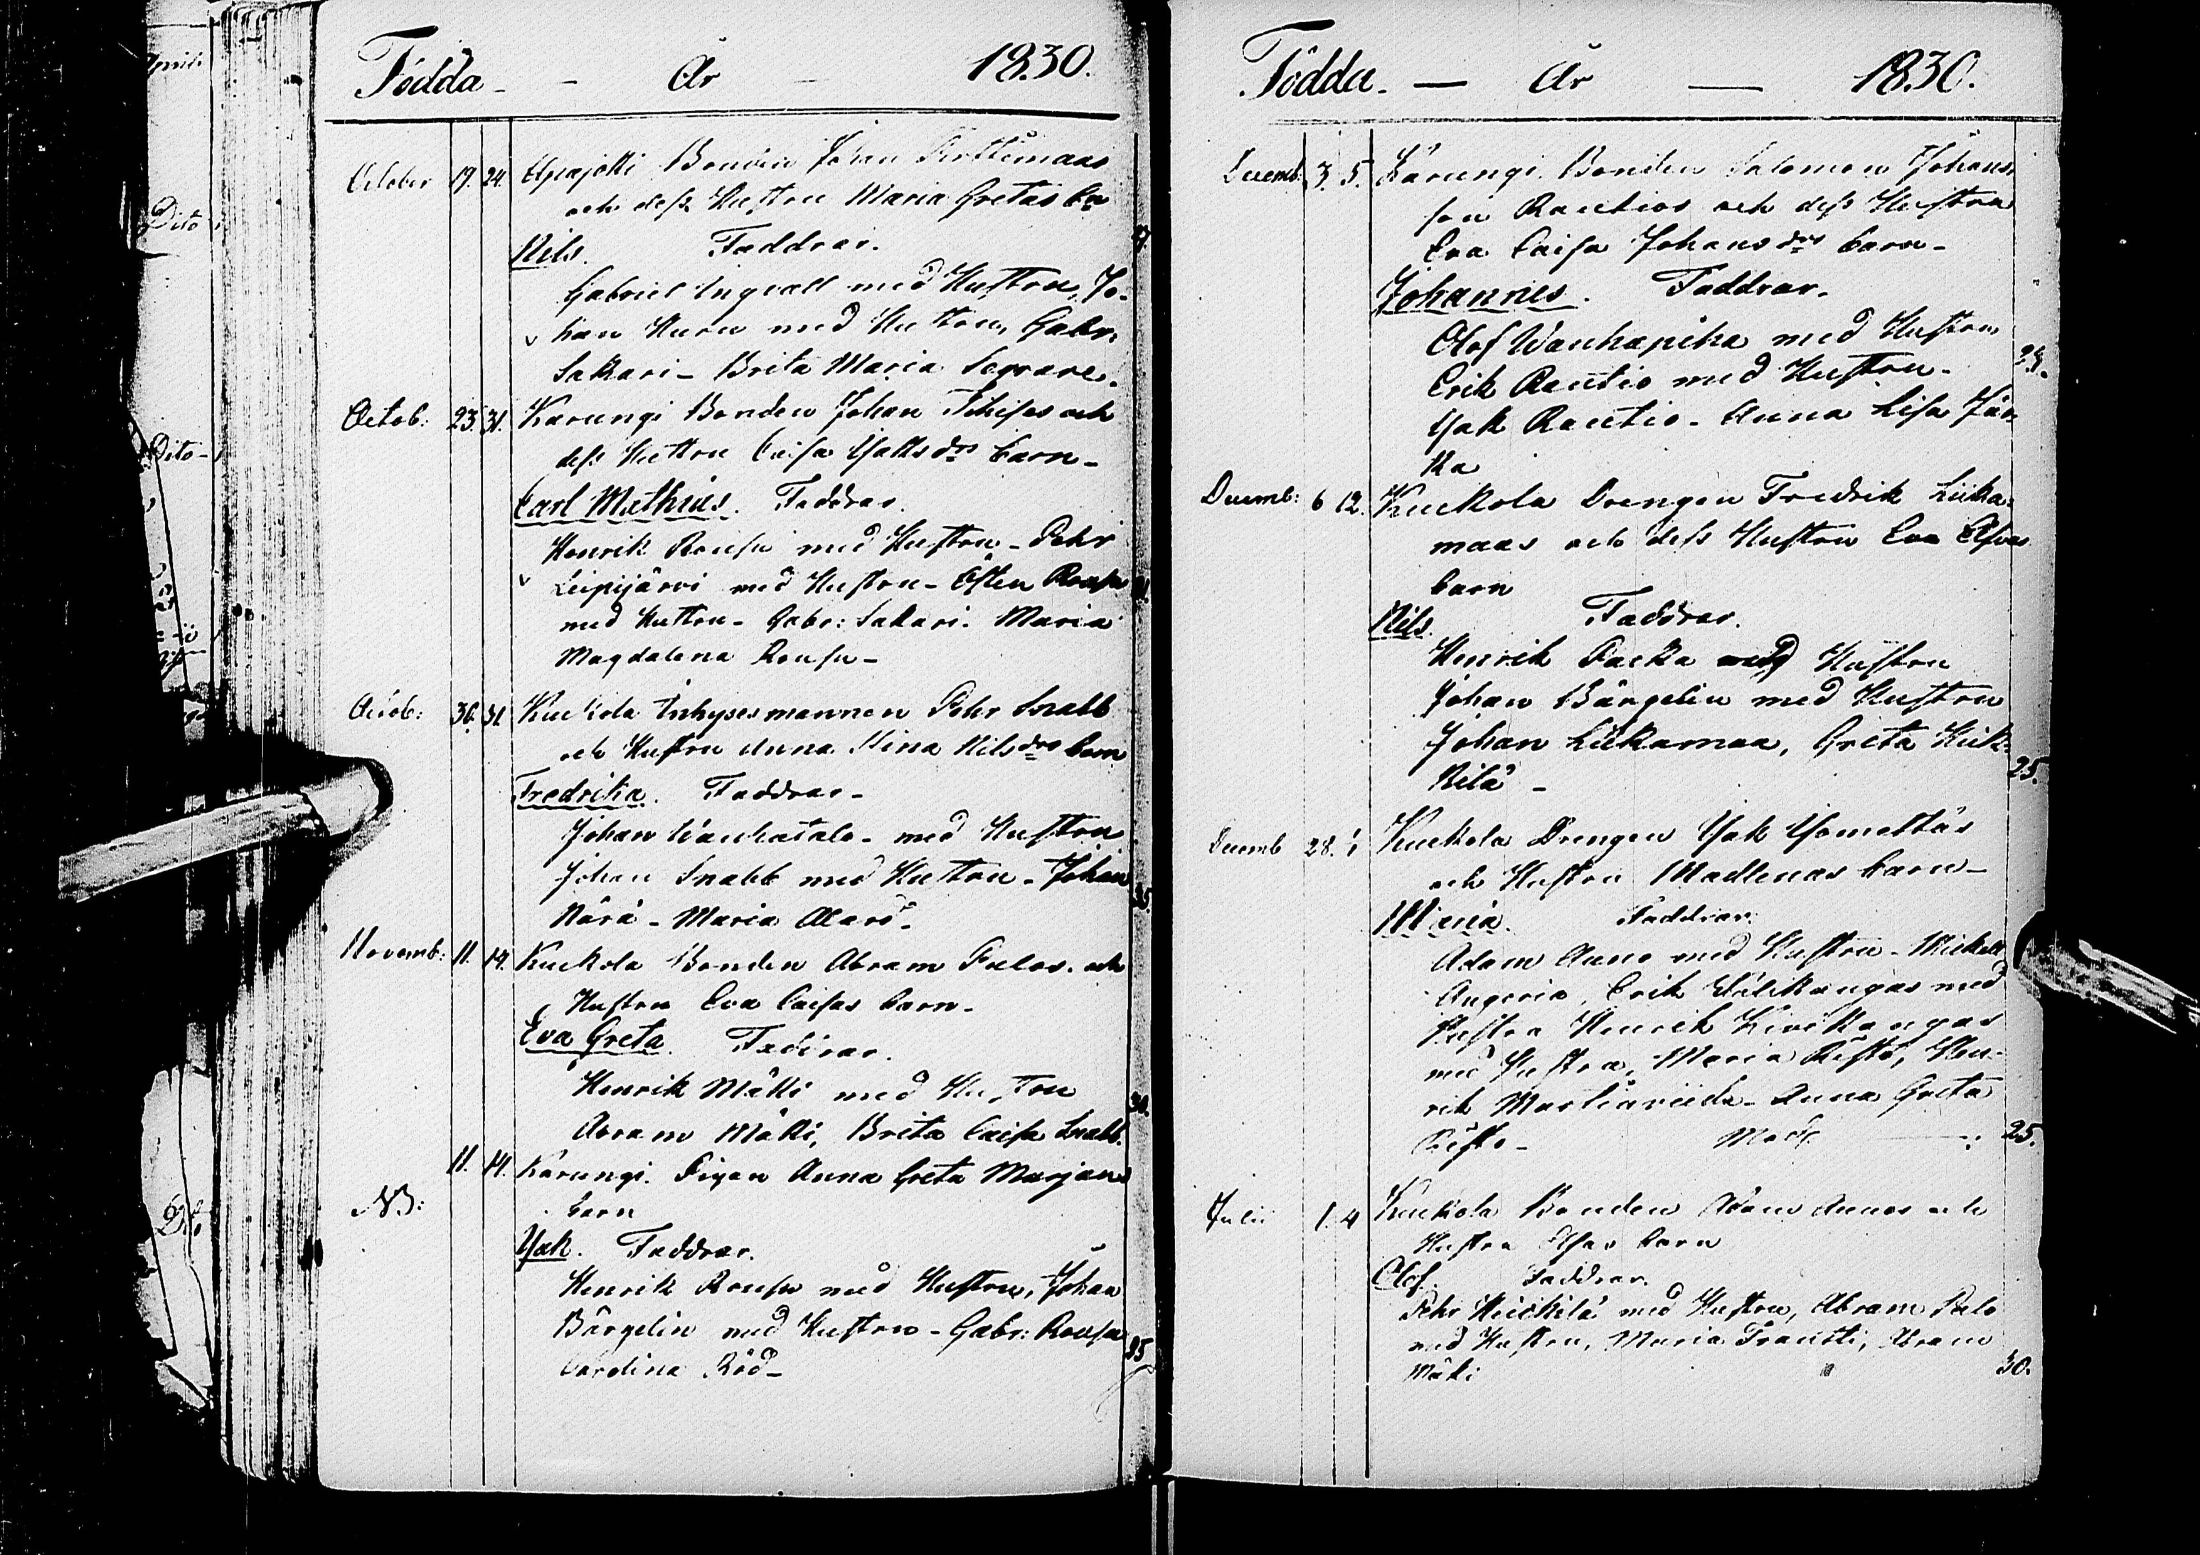 Födda - År - 1830.
October 19. 24. Bonden Johan
och dess Hustru Maria Gretas bn
Nils. Faddrar.
Gabriel Ingvall med Hustru, Jo-
han med Hustru, Gabr.
Sakari - Brita Maria
Octob: 23. 31. Karungi Bonden Johan och
dess Hustru Caisa Jaksdrs barn -
Carl Mathias. Faddrar.
Henrik Rousu med Hustru - Pehr
Leipijärvi med Hustru - Östen Rousu
med Hustru - Gabr: Sakari. Maria
Magdalena Rousu -
Octob: 30. 31. Kuckola Inhysesmannen Pehr Snabb
och Hustru Anna Stina Nilsdrs barn
Fredrika. Faddrar -
Johan med Hustru
Johan Snabb med Hustru - Johan
Närä - Maria
Novemb: 11. 14. Kuckola Bonden Abram Palos och
Hustru Eva Caisas barn -
Eva Greta. Faddrar.
Henrik Mäki med Hustru
Abram Mäki, Brita Caisa Snabb.
30.
11. 14. Karungi. Pigan Anna Greta Marjans
NB: barn
Jak. Faddrar.
Henrik Rousu med Hustru, Johan
Bärgelin med Hustru - Gabr: Rousu
Carolina Röd -
Födda - År - 1830.
Decemb: 3. 5. Karungi Bonden Salomon Johans
son Rautios och dess Hustru
Eva Caisa Johansdrs barn -
Johannes. Faddrar.
Olof Wanhapiha med Hustru
Erik Rautio med Hustru -
Jak Rautio - Anna Lisa Jun
ka
Decemb: 6 12. Kuckola Drengen Fredrik Liika-
maas och dess Hustru Eva Elsas
barn
Nils. Faddrar.
Henrik Packa med Hustru
Johan Bärgelin med Hustru
Johan Liikamaa, Greta Heik-
kilä - 25.
Decemb 28. 1 Kuckola Drengen Jak
och Hustru Madlenas barn -
Maria. Faddrar.
Adam Auno med Hustru - Mickel
Angeria, Erik med
Hustru Henrik Kivikangas
med Hustru, Maria Risto, Hen-
rik - Anna Greta
Risto - 25.
Julii 1. 4 Kuckola Bonden Adam Aunos och
Hustru Elsas barn
Olof. Faddrar.
Pehr Heickilä med Hustru, Abram Palo
med Hustru, Maria Abram
Mäki 30.